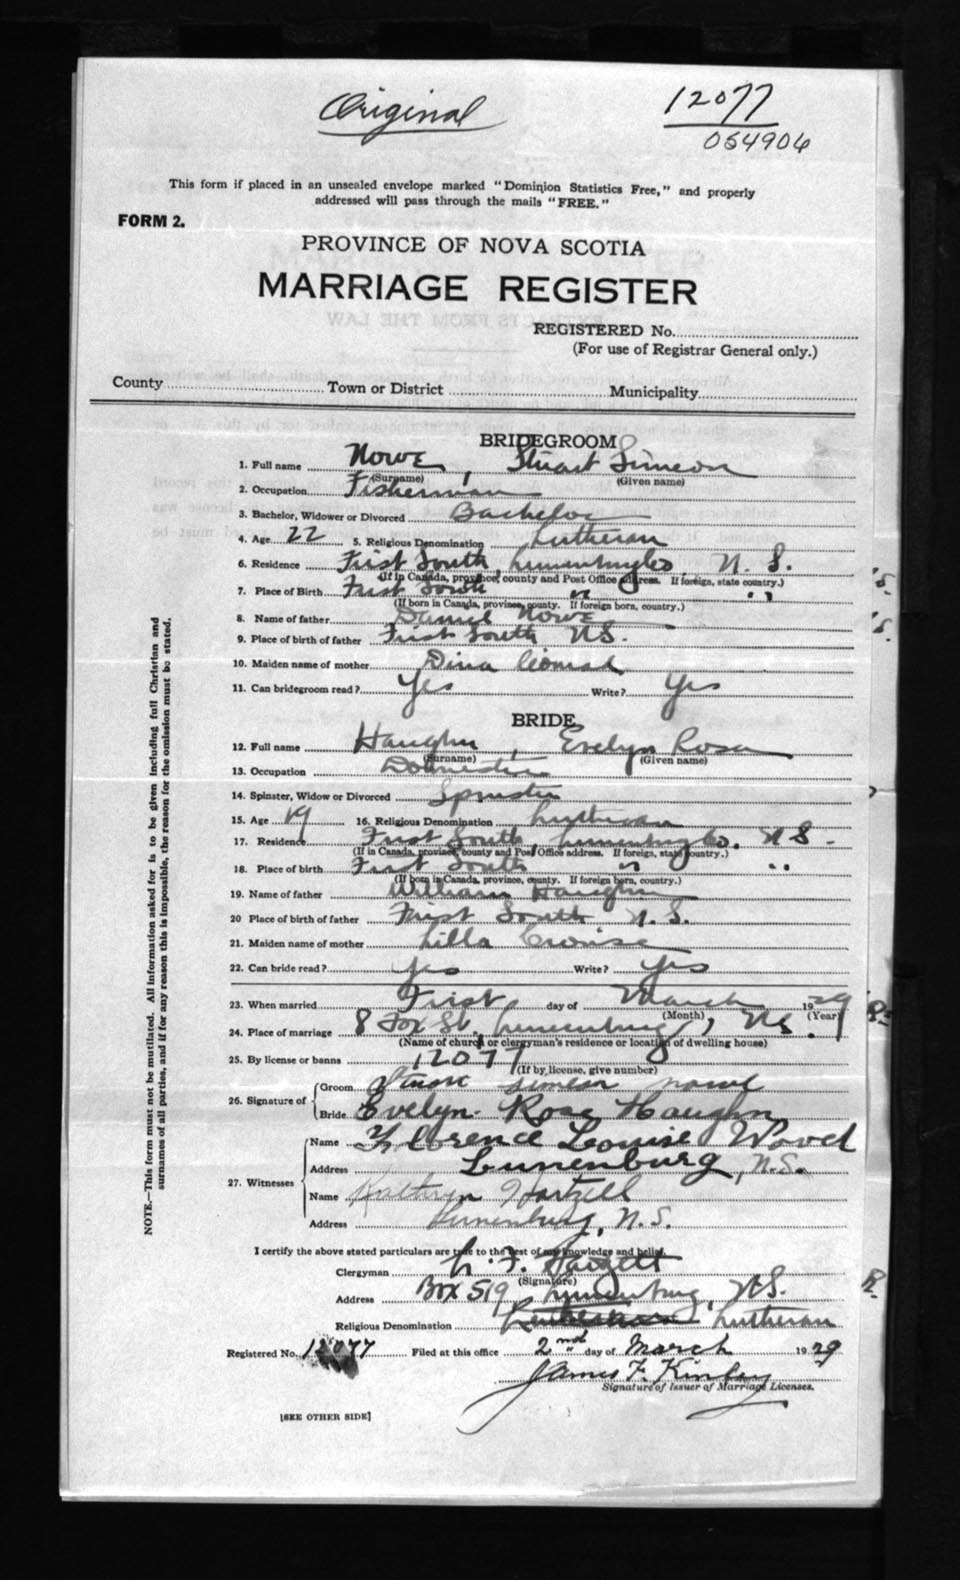 Original
12077
054904
This form if placed in an unsealed envelope marked "Dominion Statistics Free," and properly
addressed will pass through the mails "FREE."
FORM 2.
PROVINCE OF NOVA SCOTIA
MARRIAGE REGISTER
REGISTERED No.
(For use of Registrar General only.)
County Town or District Municipality
BRIDEGROOM
1. Full name Nowe, Stuart Simeon
(Surname) (Given name)
2. Occupation Fisherman
3. Bachelor, Widower or Divorced Bachelor
4. Age 22 5. Religious Denomination Lutheran
6. Residence First South, Lunenburg Co. N. S.
(If in Canada, province, county and Post Office address. If foreign, state country.)
7. Place of Birth First South " "
(If born in Canada, province, county. If foreign born, country.)
8. Name of father Daniel Nowe
9. Place of birth of father First South N.S.
10. Maiden name of mother Dina Conrad
11. Can bridegroom read? Yes Write? Yes
BRIDE
12. Full name Haughn, Evelyn Rosa
(Surname) (Given name)
13. Occupation Domestic
14. Spinster, Widow or Divorced Spinster
15. Age 19 16. Religious Denomination Lutheran
17. Residence First South, Lunenburg Co. N S.
(If in Canada, province, county and Post Office address. If foreign, state country.)
18. Place of birth First South " "
(If born in Canada, province, county. If foreign born, country.)
19. Name of father William Haughn
20 Place of birth of father First South N.S.
21. Maiden name of mother Lilla Crouse
22. Can bride read? Yes Write? Yes
23. When married First day of March 1929
(Month) (Year)
24. Place of marriage 8 Fox St., Lunenburg, N.S.
(Name of church or clergyman's residence or location of dwelling house)
25. By license or banns 12077
(If by license, give number)
26. Signature of Groom Stuart Simeon Nowe
Bride Evelyn Rose Haughn
27. Witnesses Name Florence Louise Wovel
Address Lunenburg, N.S.
Name Kathryn Hartzell
Address Lunenburg, N.S.
I certify the above stated particulars are true to the best of my knowledge and belief.
Clergyman L. F.
(Signature)
Address Box 519 Lunenburg, N.S.
Religious Denomination Lutheran
Registered No. 12077 Filed at this office 2nd day of March 1929
James F. Kinley
Signature of Issuer of Marriage Licenses.
[SEE OTHER SIDE]
NOTE.—This form must not be mutilated. All information asked for is to be given including full Christian and
surnames of all parties, and if for any reason this is impossible, the reason for the omission must be stated.